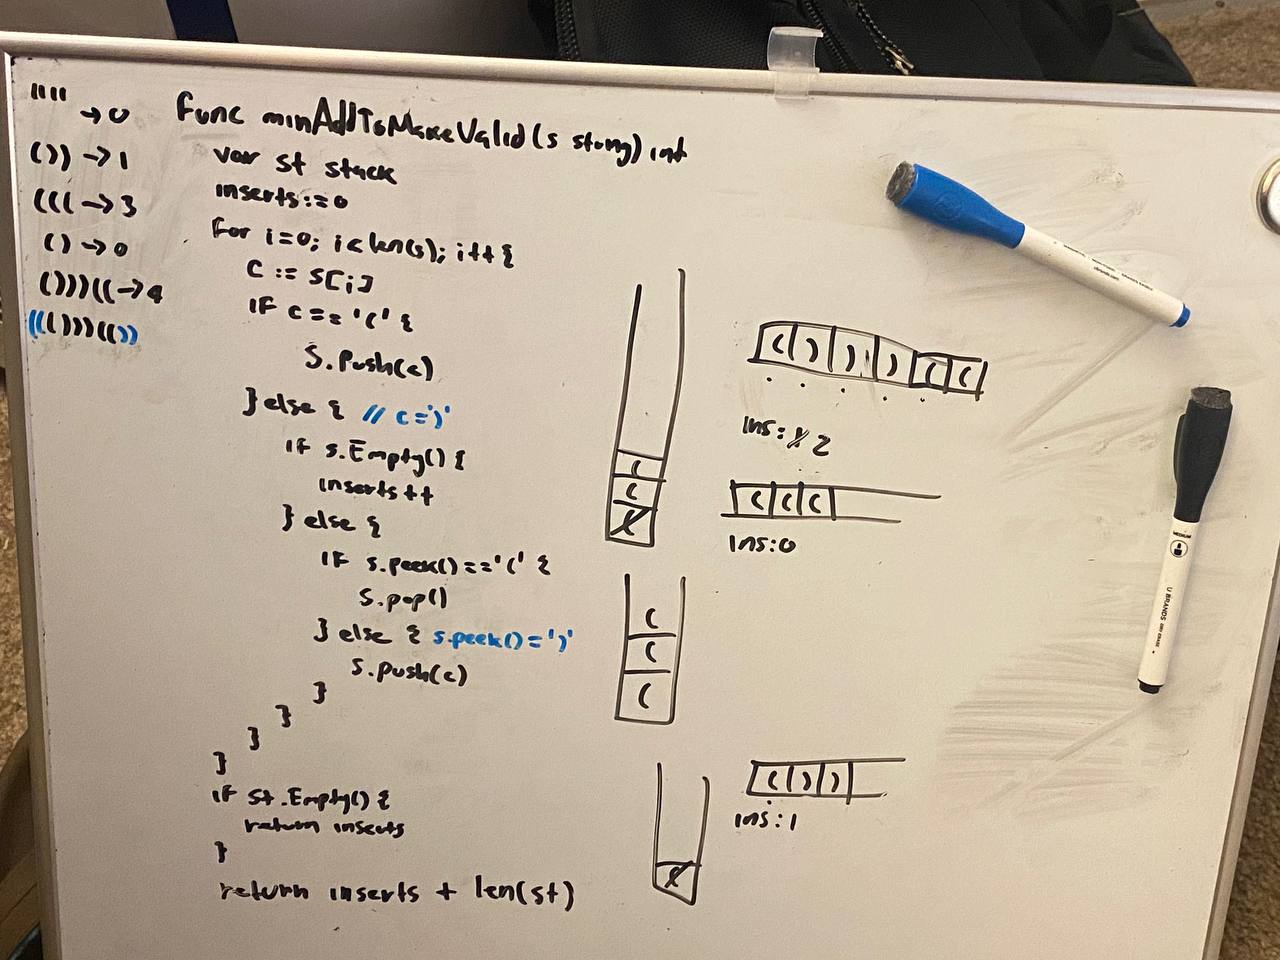 "" → 0
()) → 1
((( → 3
() → 0
()))(( → 4
((()))(())
func minAddToMakeValid(s string) int
var st stack
inserts:=0
for i=0; i<len(s); i++ {
c := s[i]
if c == '(' {
s.Push(c)
} else { // c=')'
if s.Empty() {
inserts++
} else {
if s.peek()=='(' {
s.pop()
} else { s.peek()=')'
s.push(c)
}
}
}
}
if st.Empty() {
return inserts
}
return inserts + len(st)
(
(
(
( ) ) ) ( (
ins: 1 2
( ( (
ins:0
(
(
(
( ) )
ins:1
(
U BRANDS
MEDIUM